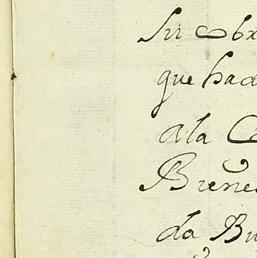 su Obx
que had
ala C
Biene
da Bu